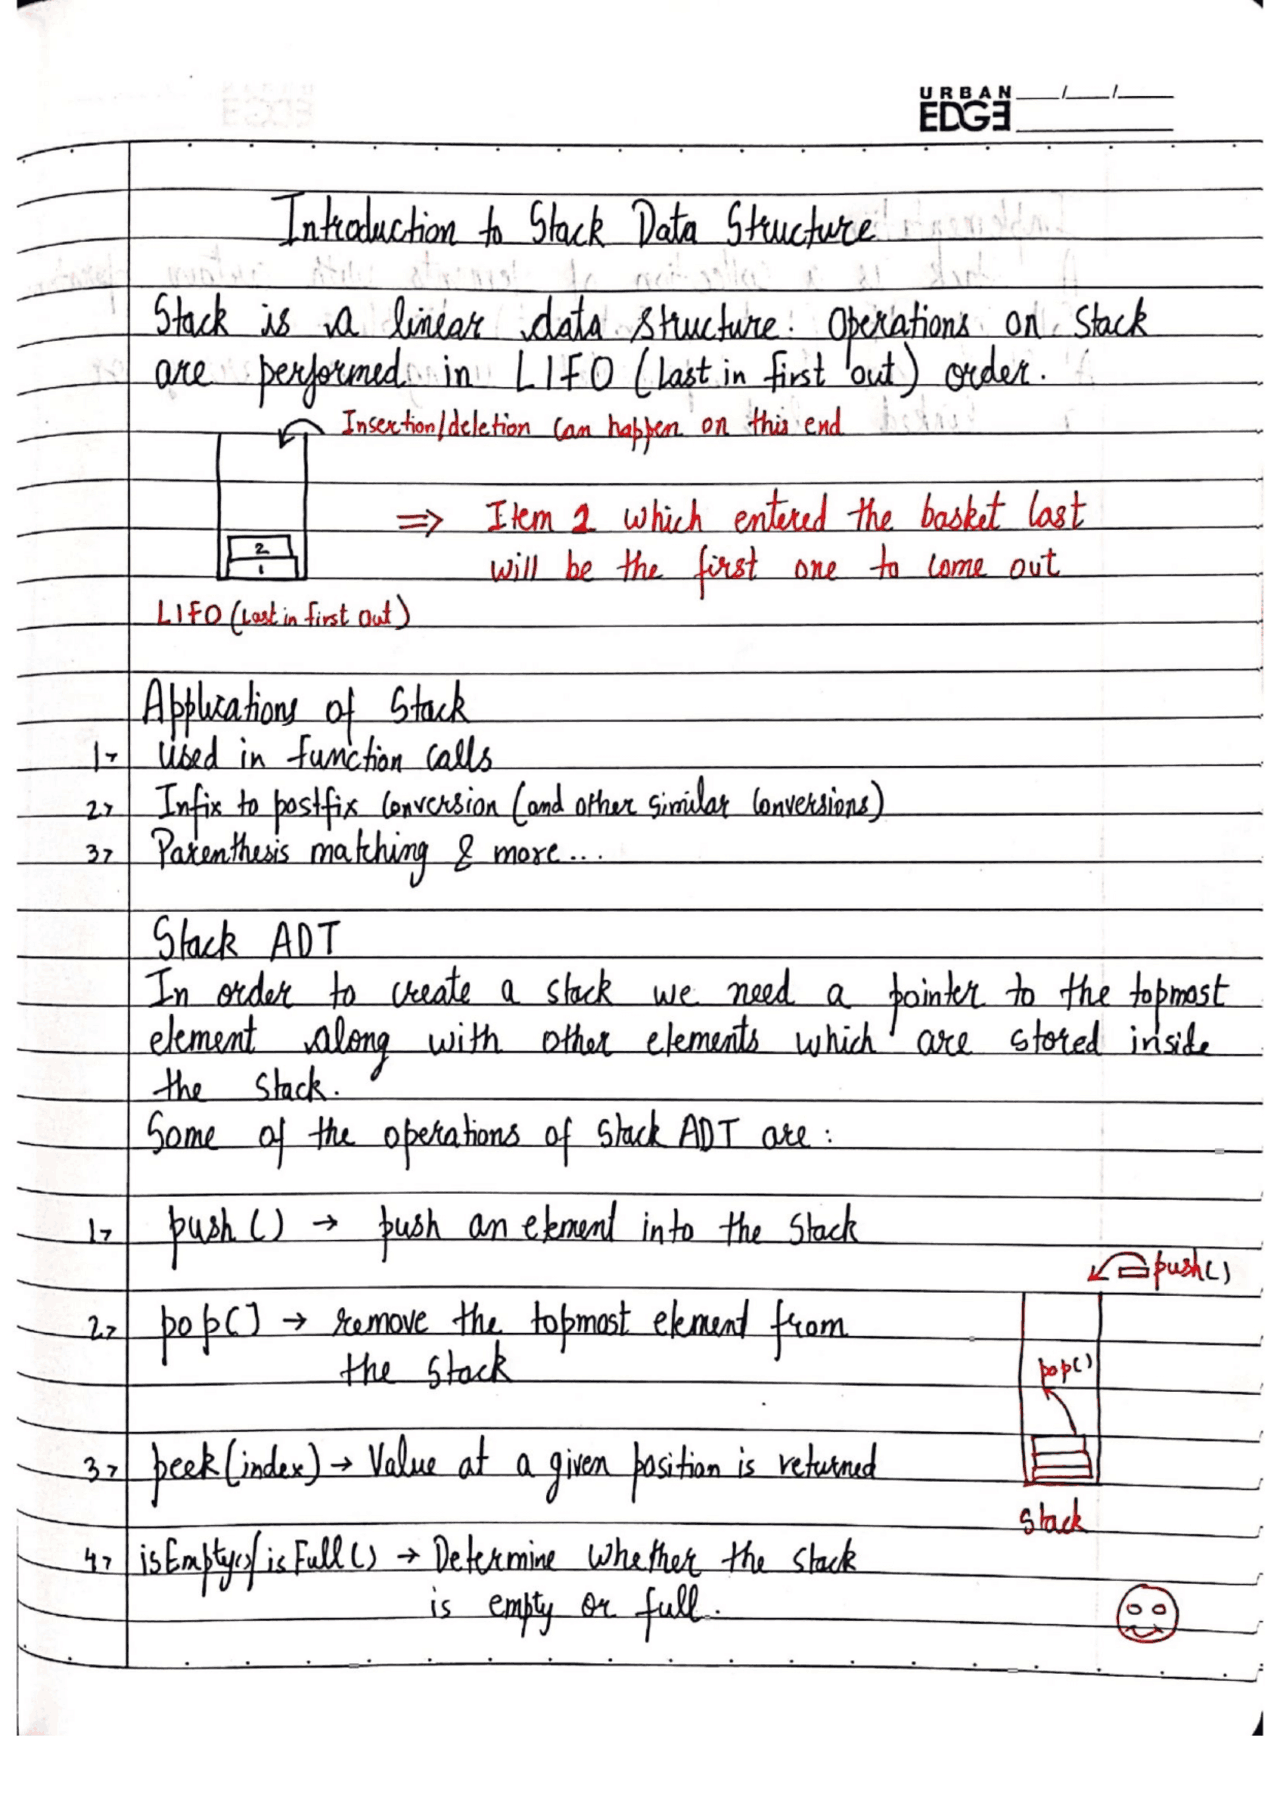 URBAN
EDGE
Introduction to Stack Data Structure
Stack is a linear data structure. Operations on stack
are performed in LIFO (last in first out) order.
Insertion/deletion can happen on this end
2
1
=> Item 2 which entered the basket last
will be the first one to come out
LIFO (Last in first out)
Applications of Stack
1> Used in function calls
2> Infix to postfix conversion (and other similar conversions)
3> Parenthesis matching & more...
Stack ADT
In order to create a stack we need a pointer to the topmost
element along with other elements which are stored inside
the stack.
Some of the operations of Stack ADT are:
1> push() → push an element into the stack
push()
2> pop() → remove the topmost element from
the stack
pop()
3> peek(index) → Value at a given position is returned
Stack
4> isEmpty()/isFull() → Determine whether the stack
is empty or full.